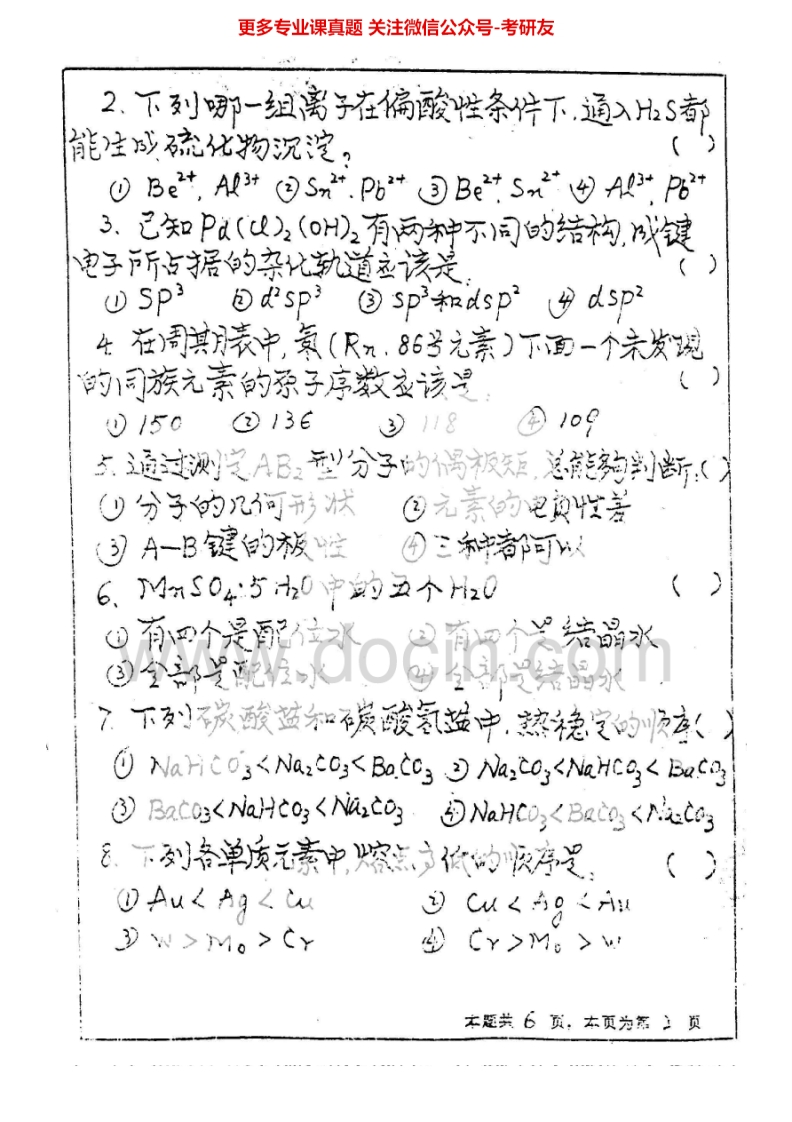 更多专业课真题 关注微信公众号-考研友
2. 下列哪一组离子在偏酸性条件下,通入H₂S都
能生成硫化物沉淀? ( )
① Be²⁺, Al³⁺ ② Sn²⁺, Pb²⁺ ③ Be²⁺, Sn²⁺ ④ Al³⁺, Pb²⁺
3. 已知Pd(Cl)₂(OH)₂有两种不同的结构,成键
电子所占据的杂化轨道应该是: ( )
① SP³ ② d²sp³ ③ sp³和dsp² ④ dsp²
4. 在周期表中,氡(Rn, 86号元素)下面一个未发现
的同族元素的原子序数应该是: ( )
① 150 ② 136 ③ 118 ④ 109
5. 通过测定AB₂型分子的偶极矩,总能够判断:( )
① 分子的几何形状 ② 元素的电负性差
③ A—B键的极性 ④ 三种都可以
6. MnSO₄·5H₂O中的五个H₂O ( )
① 有四个是配位水 ② 有四个是结晶水
③ 全部是配位水 ④ 全部是结晶水
www.docin.com
7. 下列碳酸盐和碳酸氢盐中,热稳定的顺序( )
① NaHCO₃<Na₂CO₃<BaCO₃ ② Na₂CO₃<NaHCO₃<BaCO₃
③ BaCO₃<NaHCO₃<Na₂CO₃ ④ NaHCO₃<BaCO₃<Na₂CO₃
8. 下列各单质元素中,熔点高低的顺序是: ( )
① Au<Ag<Cu ② Cu<Ag<Au
③ W>Mo>Cr ④ Cr>Mo>W
本题共 6 页,本页为第 页